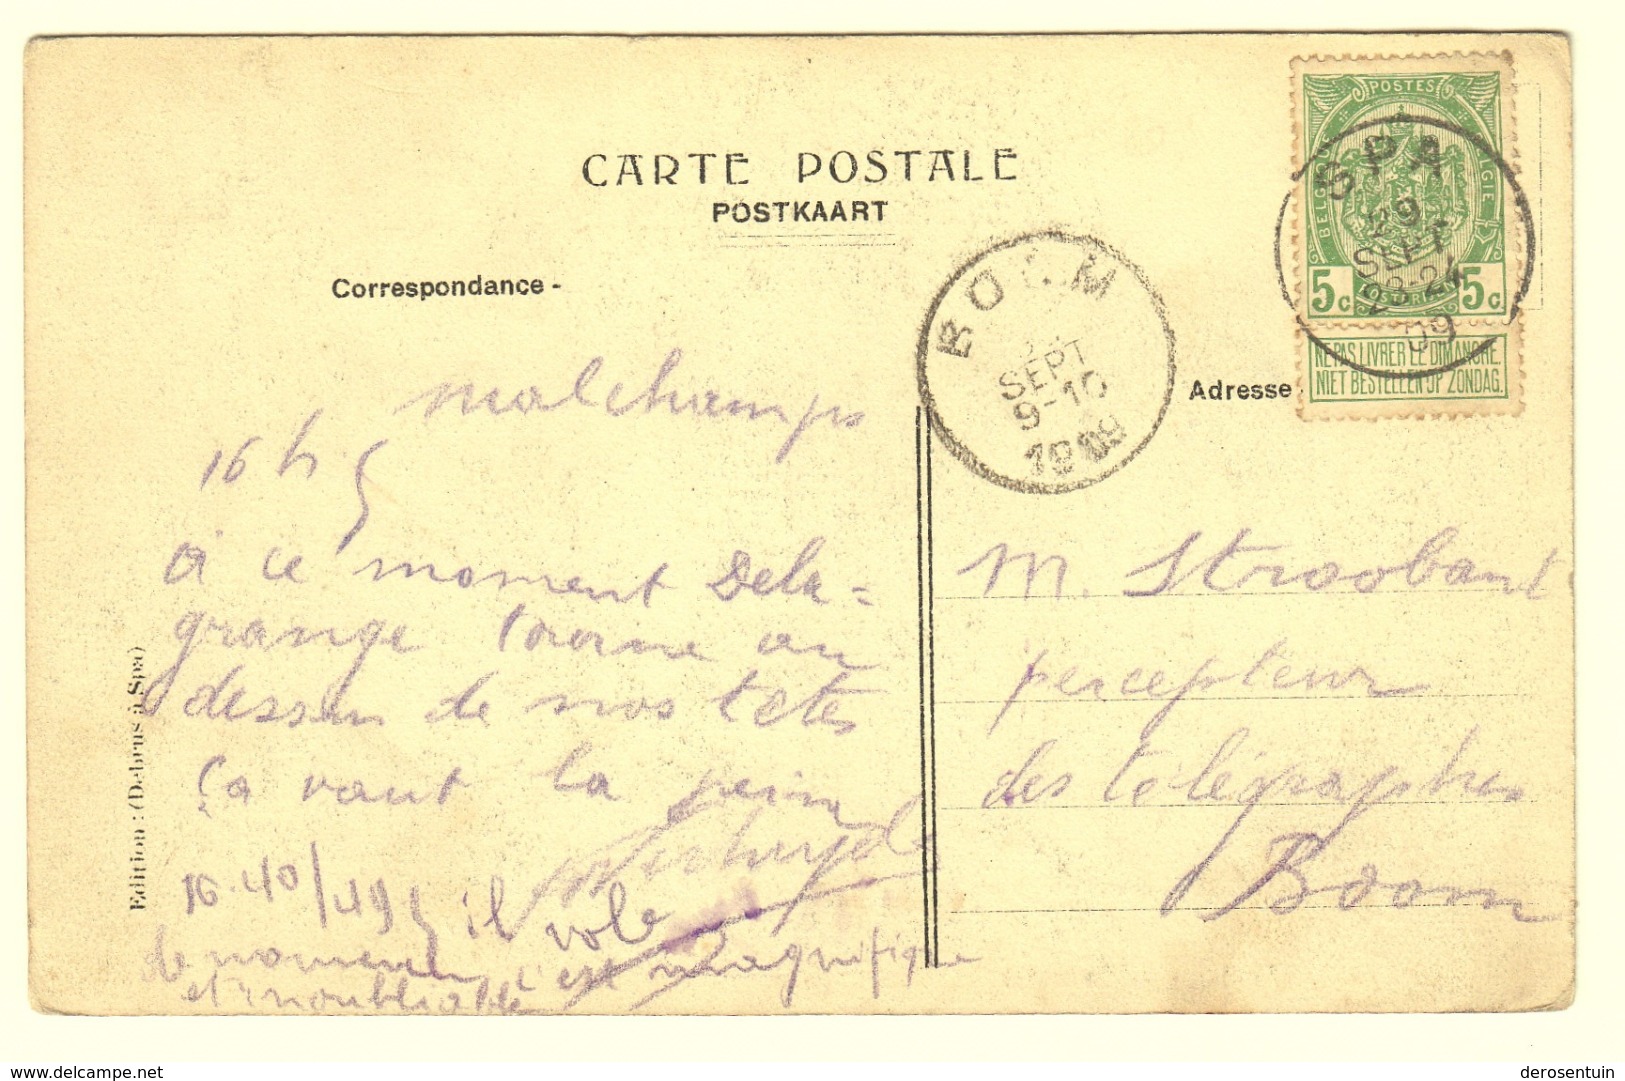 CARTE POSTALE
POSTKAART
Correspondance -
Adresse
POSTES
BELGIQUE BELGIE
5c 5c
NE PAS LIVRER LE DIMANCHE.
NIET BESTELLEN OP ZONDAG.
SPA
29
SEPT
23-24
09
BOOM
SEPT
9-10
1909
malchamps
16 h
à ce moment Dela=
grange tourne au
dessus de nos têtes
ça vaut la peine
16.40/49 il vole
de nouveau c'est magnifique
et inoubliable
M. Stroobant
percepteur
des télégraphes
Boom
Edition : (Debrus à Spa)
delcampe.net
derosentuin